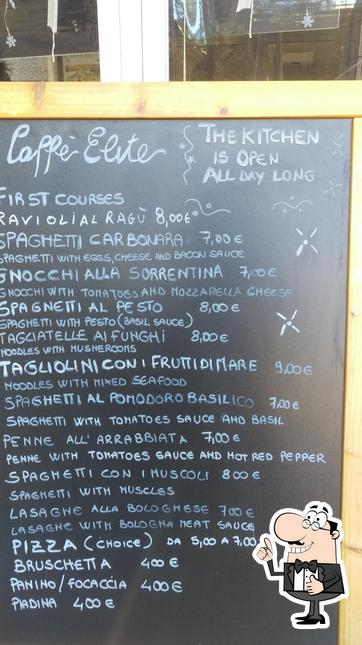 Caffè Elite
THE KITCHEN
IS OPEN
ALL DAY LONG
FIRST COURSES
RAVIOLI AL RAGÙ 8,00€
SPAGHETTI CARBONARA 7,00€
SPAGHETTI WITH EGGS, CHEESE AND BACON SAUCE
GNOCCHI ALLA SORRENTINA 7,00€
GNOCCHI WITH TOMATOES AND MOZZARELLA CHEESE
SPAGNETTI AL PESTO 8,00€
SPAGHETTI WITH PESTO (BASIL SAUCE)
TAGLIATELLE AI FUNGHI 8,00€
NOODLES WITH MUSHEROOMS
TAGLIOLINI CON I FRUTTI DI MARE 9,00€
NOODLES WITH MIXED SEAFOOD
SPAGHETTI AL POMODORO BASILICO 7,00€
SPAGHETTI WITH TOMATOES SAUCE AND BASIL
PENNE ALL' ARRABBIATA 7,00€
PENNE WITH TOMATOES SAUCE AND HOT RED PEPPER
SPAGHETTI CON I MUSCOLI 8 00€
SPAGHETTI WITH MUSCLES
LASAGNE ALLA BOLOGHESE 7 00€
LASAGNE WITH BOLOGNA MEAT SAUCE
PIZZA (CHOICE) DA 5,00 A 7,00
BRUSCHETTA 4 00€
PANINO/FOCACCIA 4 00€
PIADINA 4 00€